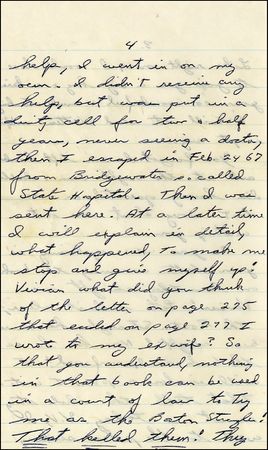 4
help, I went in on my
own. I didn't receive any
help, but was put in a
dirty cell for two & half
years, never seeing a doctor,
then I escaped in Feb. 24 67
from Bridgewater so. called
State Hospital. Then I was
sent here. At a later time
I will explain in detail,
what happened, to make me
stop and give myself up!
Vivian what did you think
of the letter on page 275
that ended on page 277 I
wrote to my ex wife? So
that you understand, nothing
in that book can be used
in a court of law to try
me as the Boston Strangler!
That killed them! they